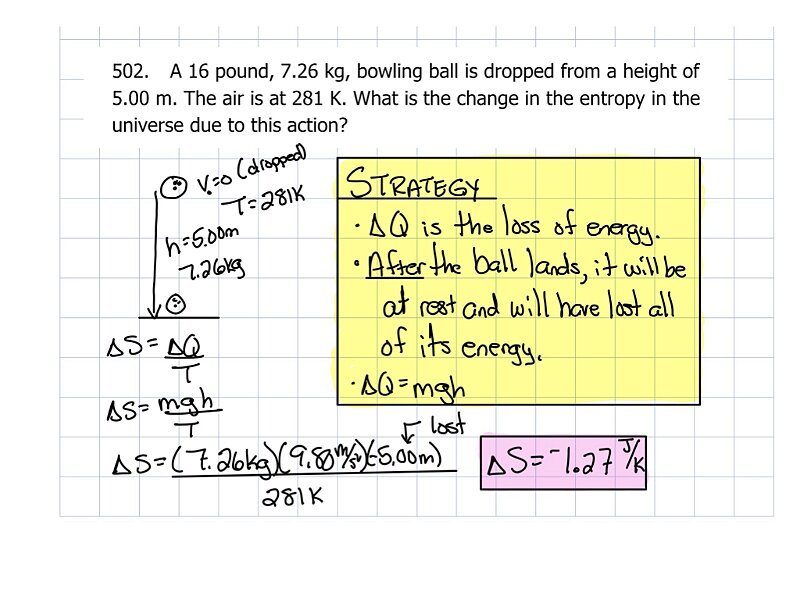 502. A 16 pound, 7.26 kg, bowling ball is dropped from a height of
5.00 m. The air is at 281 K. What is the change in the entropy in the
universe due to this action?
V₀=0 (dropped)
T=281K
h=5.00m
7.26kg
ΔS=ΔQ/T
ΔS=mgh/T
STRATEGY
· ΔQ is the loss of energy.
· After the ball lands, it will be
at rest and will have lost all
of its energy.
· ΔQ=mgh
lost
ΔS=(7.26kg)(9.80m/s²)(-5.00m)
281K
ΔS=⁻1.27 J/K